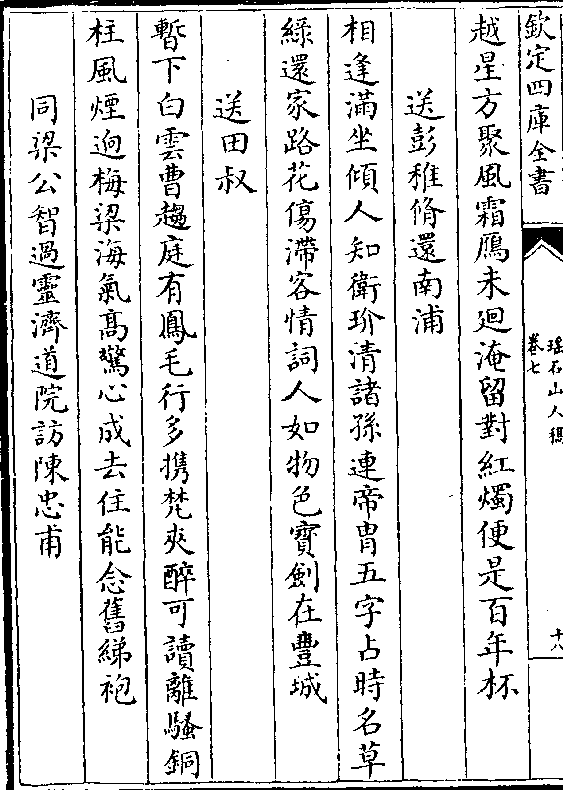 欽定四庫全書
瑶石山人稿
卷七
十八
越星方聚風霜鴈未廻淹留對紅燭便是百年杯
送彭稚脩還南浦
相逢滿坐傾人知衛玠清諸孫連帝胄五字占時名草
綠還家路花傷滯客情詞人如物色寳劍在豐城
送田叔
暫下白雲曹趨庭有鳳毛行多携梵夾醉可讀離騷銅
柱風煙逈梅梁海氣髙驚心成去住能念舊綈袍
同梁公智過靈濟道院訪陳忠甫